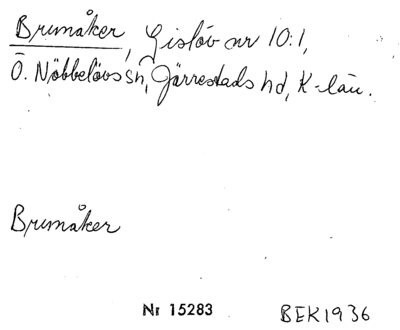 Brumåker, Gislöv nr 10:1,
Ö. Nöbbelövs sn, Järrestads hd, K-län.
Brumåker
Nr 15283
BEK1936